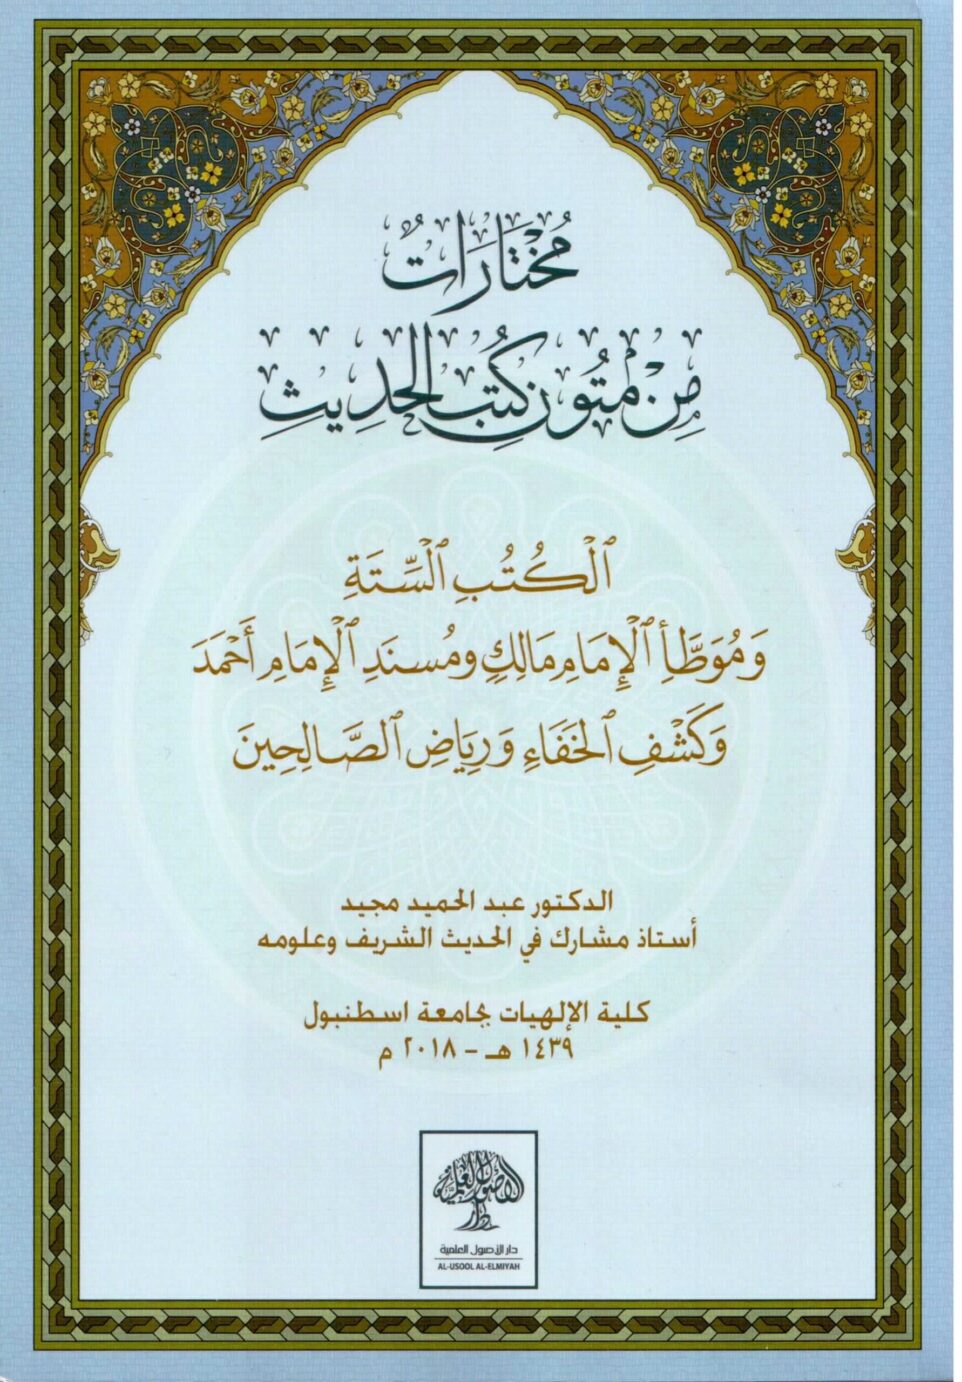 مُخْتَارَاتٌ
مِنْ مُتُونِ كُتُبِ الحَدِيثِ
الْكُتُبِ السِّتَةِ
وَمُوَطَّأِ الْإِمَامِ مَالِكٍ وَمُسنَدِ الْإِمَامِ أَحْمَدَ
وَكَشْفِ الخَفَاءِ وَرِيَاضِ الصَّالِحِينَ
الدكتور عبد الحميد مجيد
أستاذ مشارك في الحديث الشريف وعلومه
كلية الإلهيات بجامعة اسطنبول
١٤٣٩ هـ - ٢٠١٨ م
دار الأصول العلمية
دار الأصول العلمية
AL-USOOL AL-ELMIYAH